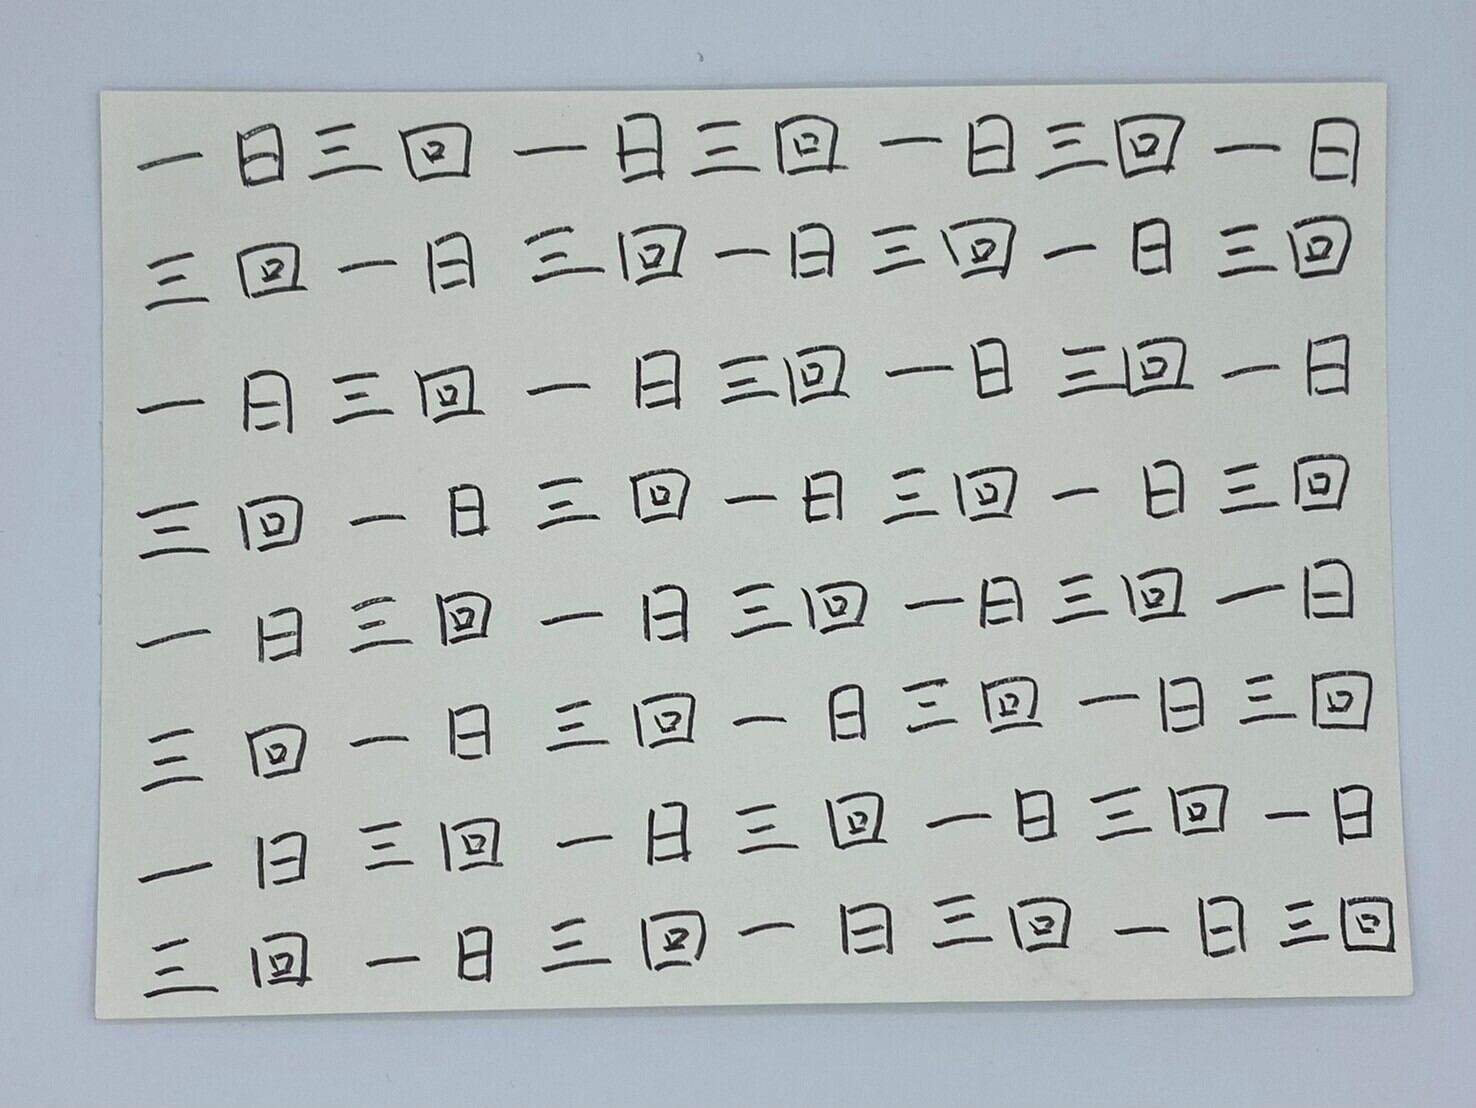 一日三回一日三回一日三回一日
三回一日三回一日三回一日三回
一日三回一日三回一日三回一日
三回一日三回一日三回一日三回
一日三回一日三回一日三回一日
三回一日三回一日三回一日三回
一日三回一日三回一日三回一日
三回一日三回一日三回一日三回